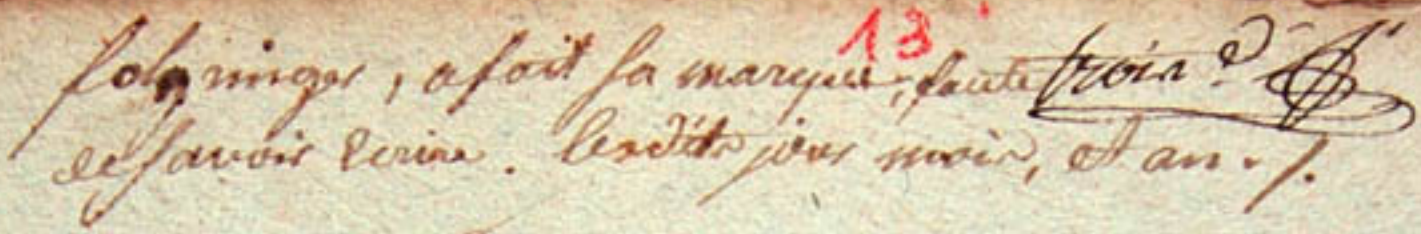 13
folzninger, a fait sa marque, faute trois.e
de savoir ecrire. lesdits jour mois, et an ./.